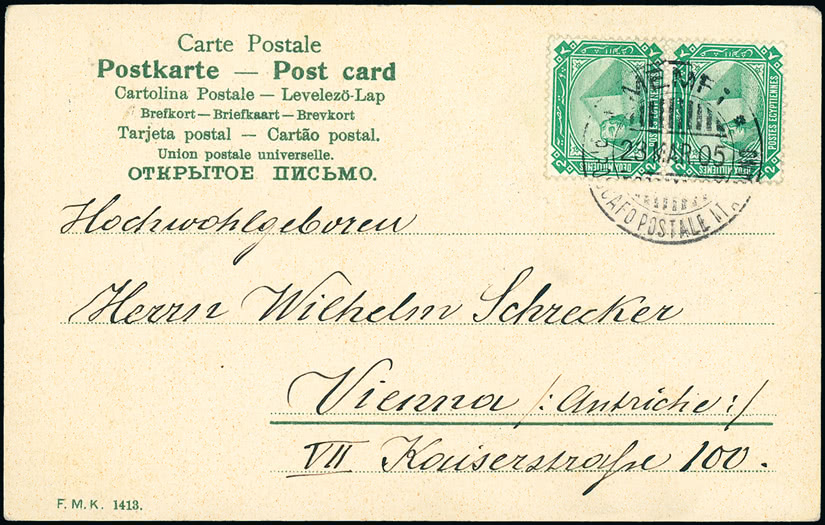 Carte Postale
Postkarte — Post card
Cartolina Postale — Levelező-Lap
Brefkort — Briefkaart — Brevkort
Tarjeta postal — Cartão postal.
Union postale universelle.
ОТКРЫТОЕ ПИСЬМО.
POSTES EGYPTIENNES
2
2
POSTES EGYPTIENNES
2
2
23 MAR 05
POSTALE IT
Hochwohlgeboren
Herrn Wilhelm Schrecker
Vienna /: Autriche :/
VII Kaiserstraße 100.
F. M. K. 1413.